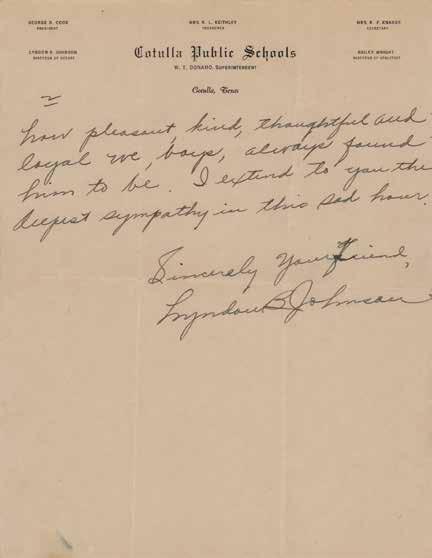 GEORGE B. COOK
PRESIDENT
MRS. K. L. KEITHLEY
TREASURER
MRS. K. F. KNAGGS
SECRETARY
LYNDON B. JOHNSON
DIRECTOR OF DEBATE
Cotulla Public Schools
BAILEY WRIGHT
DIRECTOR OF ATHLETICS
W. T. DONAHO, SUPERINTENDENT
Cotulla, Texas
2
how pleasant, kind, thoughtful and
loyal we, boys, always found
him to be. I extend to you the
deepest sympathy in this sad hour.
Sincerely Your Friend,
Lyndon B Johnson